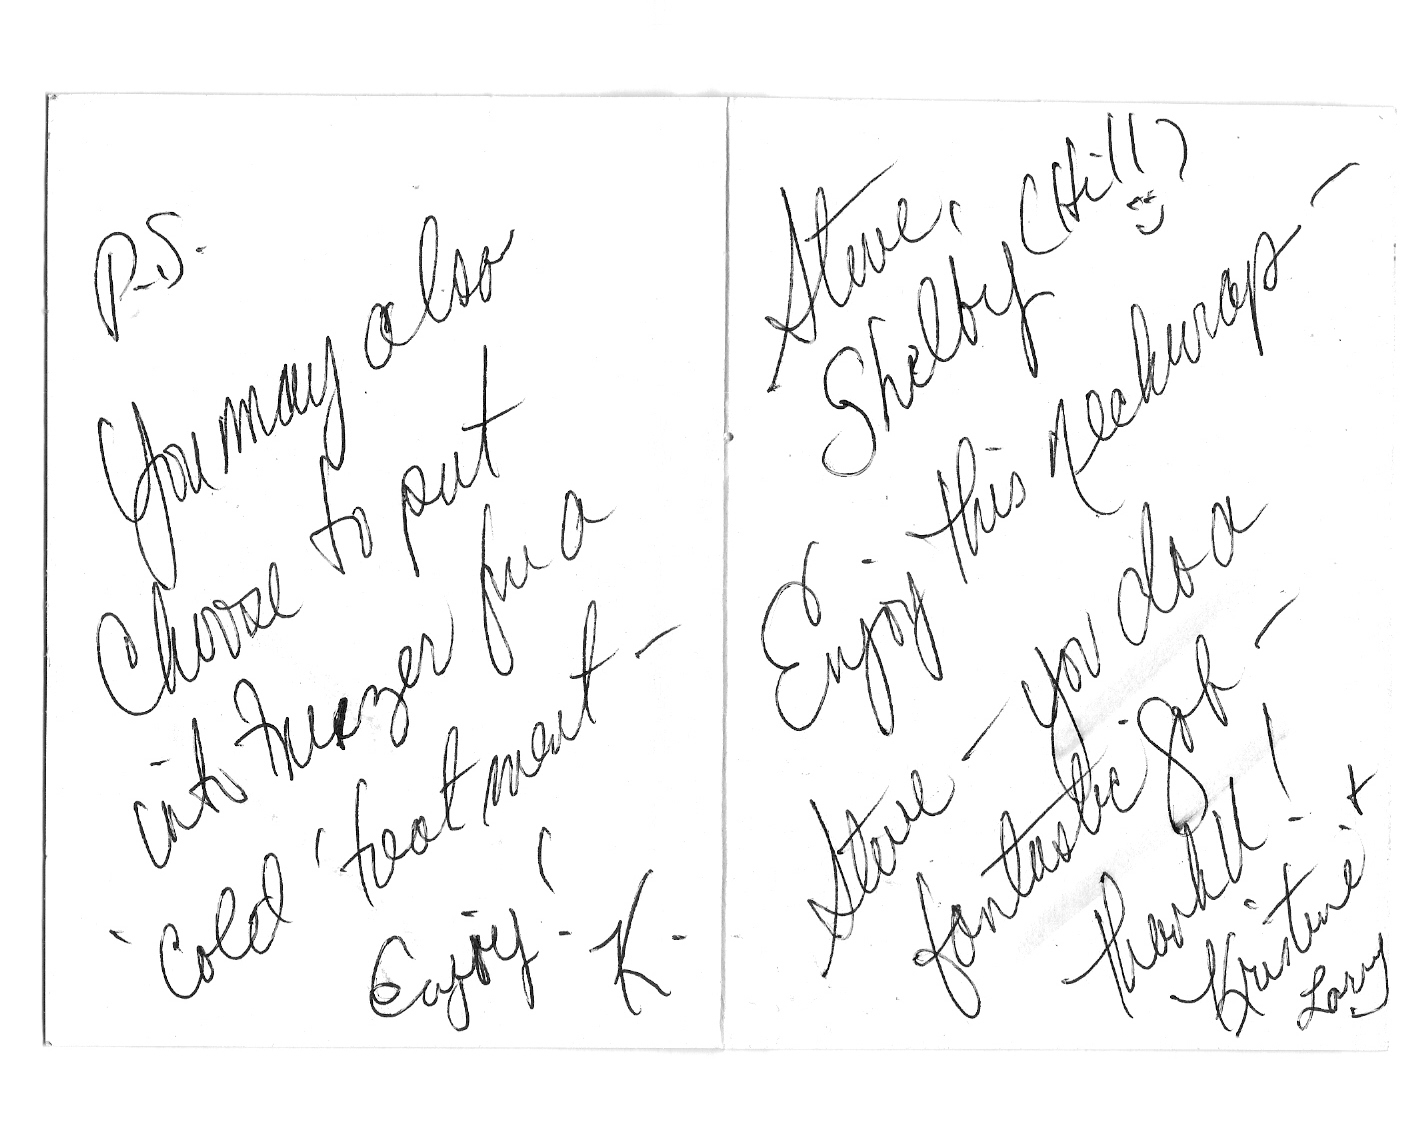 P.S.
You may also
choose to put
into freezer for a
'cold' treatment -
Enjoy! K.
Steve,
Shelby (Hi!!)
Enjoy this neckwrap -
Steve - you do a
fantastic job -
thank U!
Kristine +
Larry